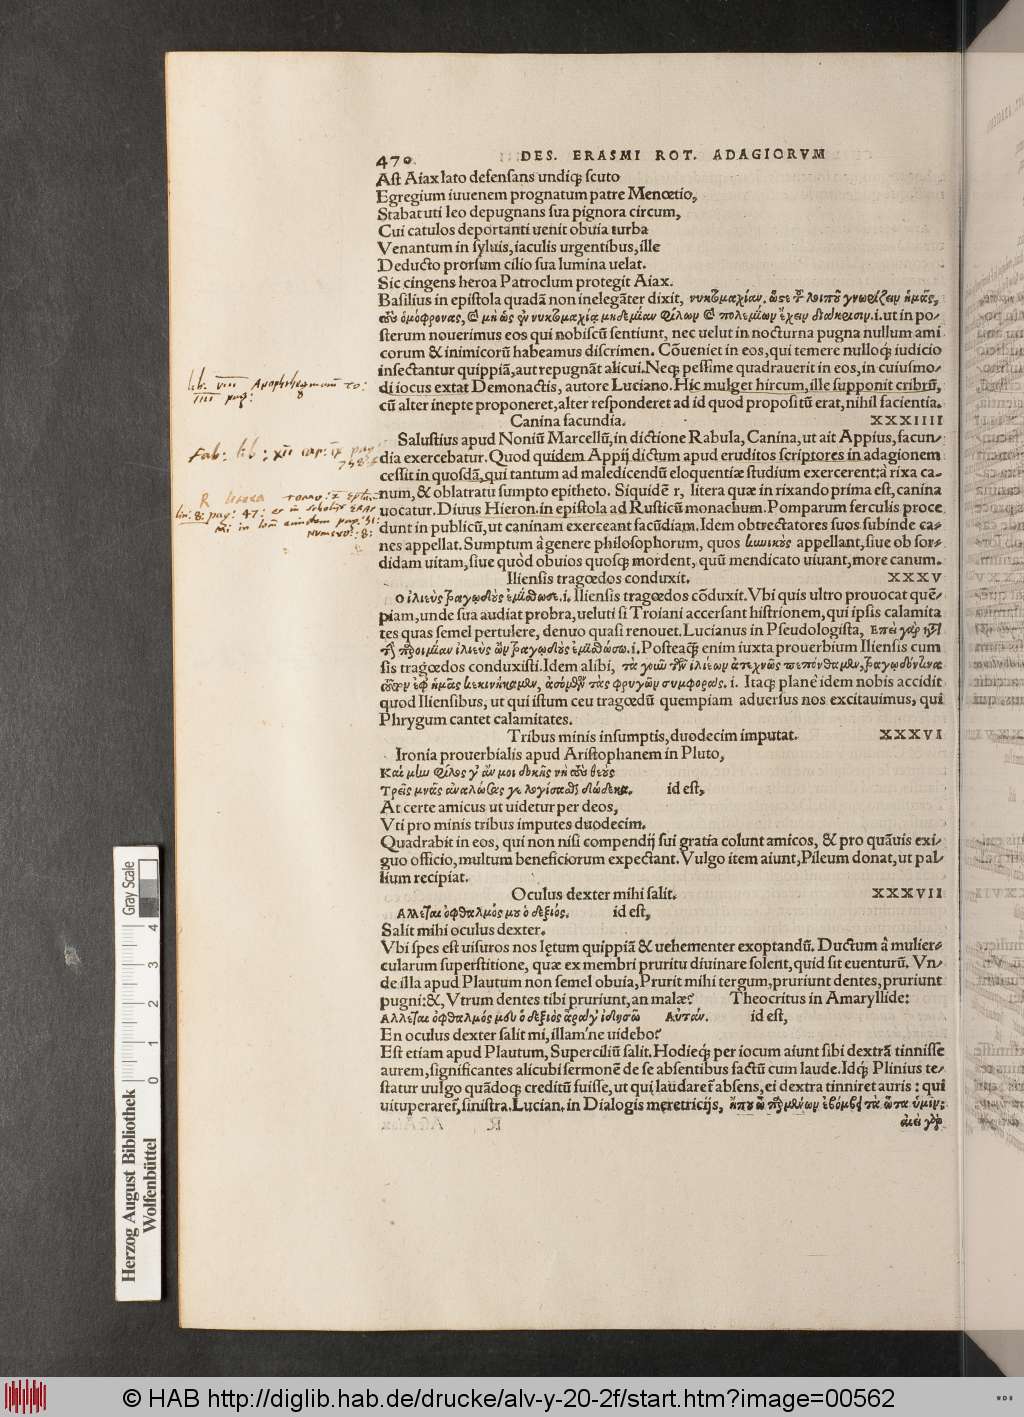 470 DES. ERASMI ROT. ADAGIORVM
Ast Aiax lato defensans undiq; scuto
Egregium iuuenem prognatum patre Menœtio,
Stabat uti leo depugnans sua pignora circum,
Cui catulos deportanti uenit obuia turba
Venantum in syluis, iaculis urgentibus, ille
Deducto prorsum cilio sua lumina uelat.
Sic cingens heroa Patroclum protegit Aiax.
Basilius in epistola quadã non inelegãter dixit, νυκτομαχίαν. ὥστε τοῦ λοιποῦ γνωρίζειν ἡμᾶς,
τοὺς ὁμόφρονας, καὶ μὴ ὡς ἐν νυκτομαχίᾳ μηδεμίαν φίλων καὶ πολεμίων ἔχειν διάκρισιν. i. ut in po⸗
sterum nouerimus eos qui nobiscũ sentiunt, nec uelut in nocturna pugna nullum ami
corum & inimicorũ habeamus discrimen. Cõueniet in eos, qui temere nulloq́; iudicio
insectantur quippiã, aut repugnãt alicui. Neq; pessime quadrauerit in eos, in cuiusmo⸗
di iocus extat Demonactis, autore Luciano. Hic mulget hircum, ille supponit cribrũ,
cũ alter inepte proponeret, alter responderet ad id quod propositũ erat, nihil facientia.
Canina facundia. XXXIIII
Salustius apud Noniũ Marcellũ, in dictione Rabula, Canina, ut ait Appius, facun⸗
dia exercebatur. Quod quidem Appij dictum apud eruditos scriptores in adagionem
cessit in quosdã, qui tantum ad maledicendũ eloquentiæ studium exercerent: à rixa ca⸗
num, & oblatratu sumpto epitheto. Siquidẽ r, litera quæ in rixando prima est, canina
uocatur. Diuus Hieron. in epistola ad Rusticũ monachum. Pomparum ferculis proce
dunt in publicũ, ut caninam exerceant facũdiam. Idem obtrectatores suos subinde ca⸗
nes appellat. Sumptum à genere philosophorum, quos κυνικὸς appellant, siue ob sor⸗
didam uitam, siue quòd obuios quosq; mordent, quũ mendicato uiuant, more canum.
Iliensis tragœdos conduxit. XXXV
ο ἰλιεὺς τραγῳδοὺς ἐμισθώσε. i. Iliensis tragœdos cõduxit. Vbi quis ultro prouocat quẽ⸗
piam, unde sua audiat probra, ueluti si Troiani accersant histrionem, qui ipsis calamita
tes quas semel pertulere, denuo quasi renouet. Lucianus in Pseudologista,
i. Posteaq̃ enim iuxta prouerbium Iliensis cum
sis tragœdos conduxisti. Idem alibi,
i. Itaq; planè idem nobis accidit
quod Iliensibus, ut qui istum ceu tragœdũ quempiam aduersus nos excitauimus, qui
Phrygum cantet calamitates.
Tribus minis insumptis, duodecim imputat. XXXVI
Ironia prouerbialis apud Aristophanem in Pluto,
Καὶ μὴν φίλος γ' ἄν μοι δοκῇς νὴ τοὺς θεοὺς
Τρεῖς μνᾶς ἀναλώσας γε λογίσασθ δώδεκα. id est,
At certe amicus ut uidetur per deos,
Vti pro minis tribus imputes duodecim.
Quadrabit in eos, qui non nisi compendij sui gratia colunt amicos, & pro quãuis exi⸗
guo officio, multum beneficiorum expectant. Vulgo item aiunt, Pileum donat, ut pal
lium recipiat.
Oculus dexter mihi salit. XXXVII
Αλλεται ὀφθαλμός μου ὁ δεξιός. id est,
Salit mihi oculus dexter.
Vbi spes est uisuros nos lętum quippiã & uehementer exoptandũ. Ductum à mulier⸗
cularum superstitione, quæ ex membri pruritu diuinare solent, quid sit euenturũ. Vn⸗
de illa apud Plautum non semel obuia, Prurit mihi tergum, pruriunt dentes, pruriunt
pugni: &, Vtrum dentes tibi pruriunt, an malæ? Theocritus in Amaryllide:
Αλλεται ὀφθαλμός μευ ὁ δεξιὸς ἆρα γ' ἰδησῶ Αὐτάν. id est,
En oculus dexter salit mi, illam'ne uidebo?
Est etiam apud Plautum, Superciliũ salit. Hodieq́; per iocum aiunt sibi dextrã tinnisse
aurem, significantes alicubi sermonẽ de se absentibus factũ cum laude. Idq́; Plinius te⸗
statur uulgo quãdoq; creditũ fuisse, ut qui laudaret̃ absens, ei dextra tinniret auris: qui
uituperaret̃, sinistra. Lucian. in Dialogis meretricijs, ἤπου ἐβόμβει τὰ ὦτα ὑμῖν:
ἀιεὶ γὰρ
lib: VIII Apophthegmatum
IIII pag:
Fab: lib: XII cap: IX pag
758
R litera
Herzog August Bibliothek
Wolfenbüttel
Gray Scale
0 1 2 3 4
© HAB http://diglib.hab.de/drucke/alv-y-20-2f/start.htm?image=00562